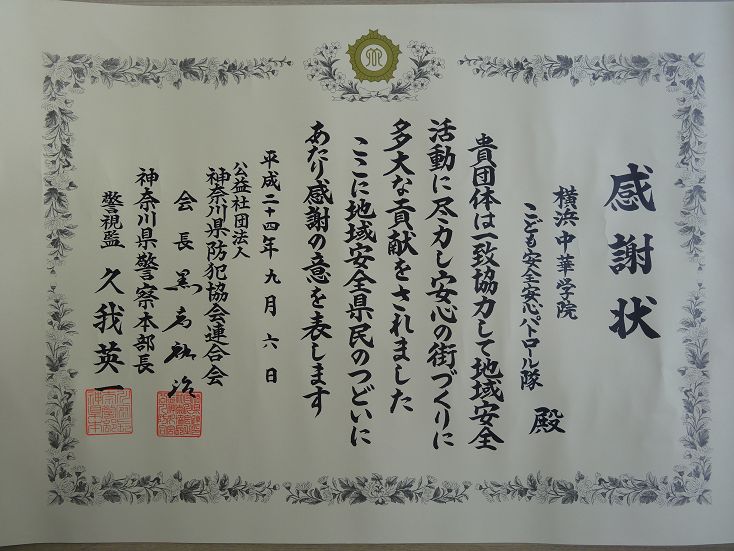 感謝状
横浜中華学院
こども安全安心パトロール隊
殿
貴団体は一致協力して地域安全
活動に尽力し安心の街づくりに
多大な貢献をされました
ここに地域安全県民のつどいに
あたり感謝の意を表します
平成二十四年九月六日
公益社団法人
神奈川県防犯協会連合会
会長
神奈川県警察本部長
警視監 久我英一